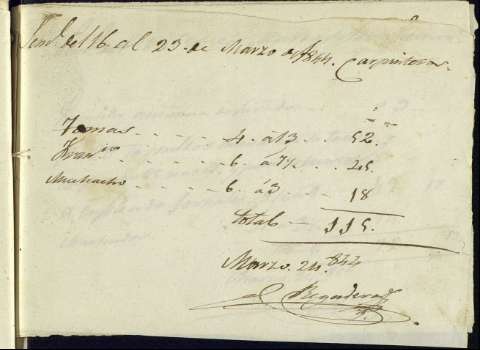 Sem.ª del 16 al 23 de Marzo de 1844. Carpinteros.
Tomas - - - - 4 - á 13 - - 52.
Fran.co - - - - 6 - á 7½ - - 45
Muchacho - - - 6 á 3 - - 18
total - 115.
Marzo 24 844
Regadera